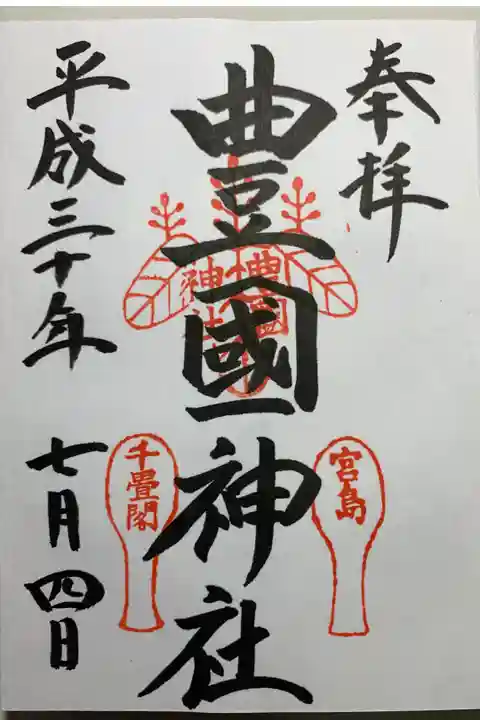 奉拝
豊國神社
豊國
神社
宮島
千畳閣
平成三十年
七月四日